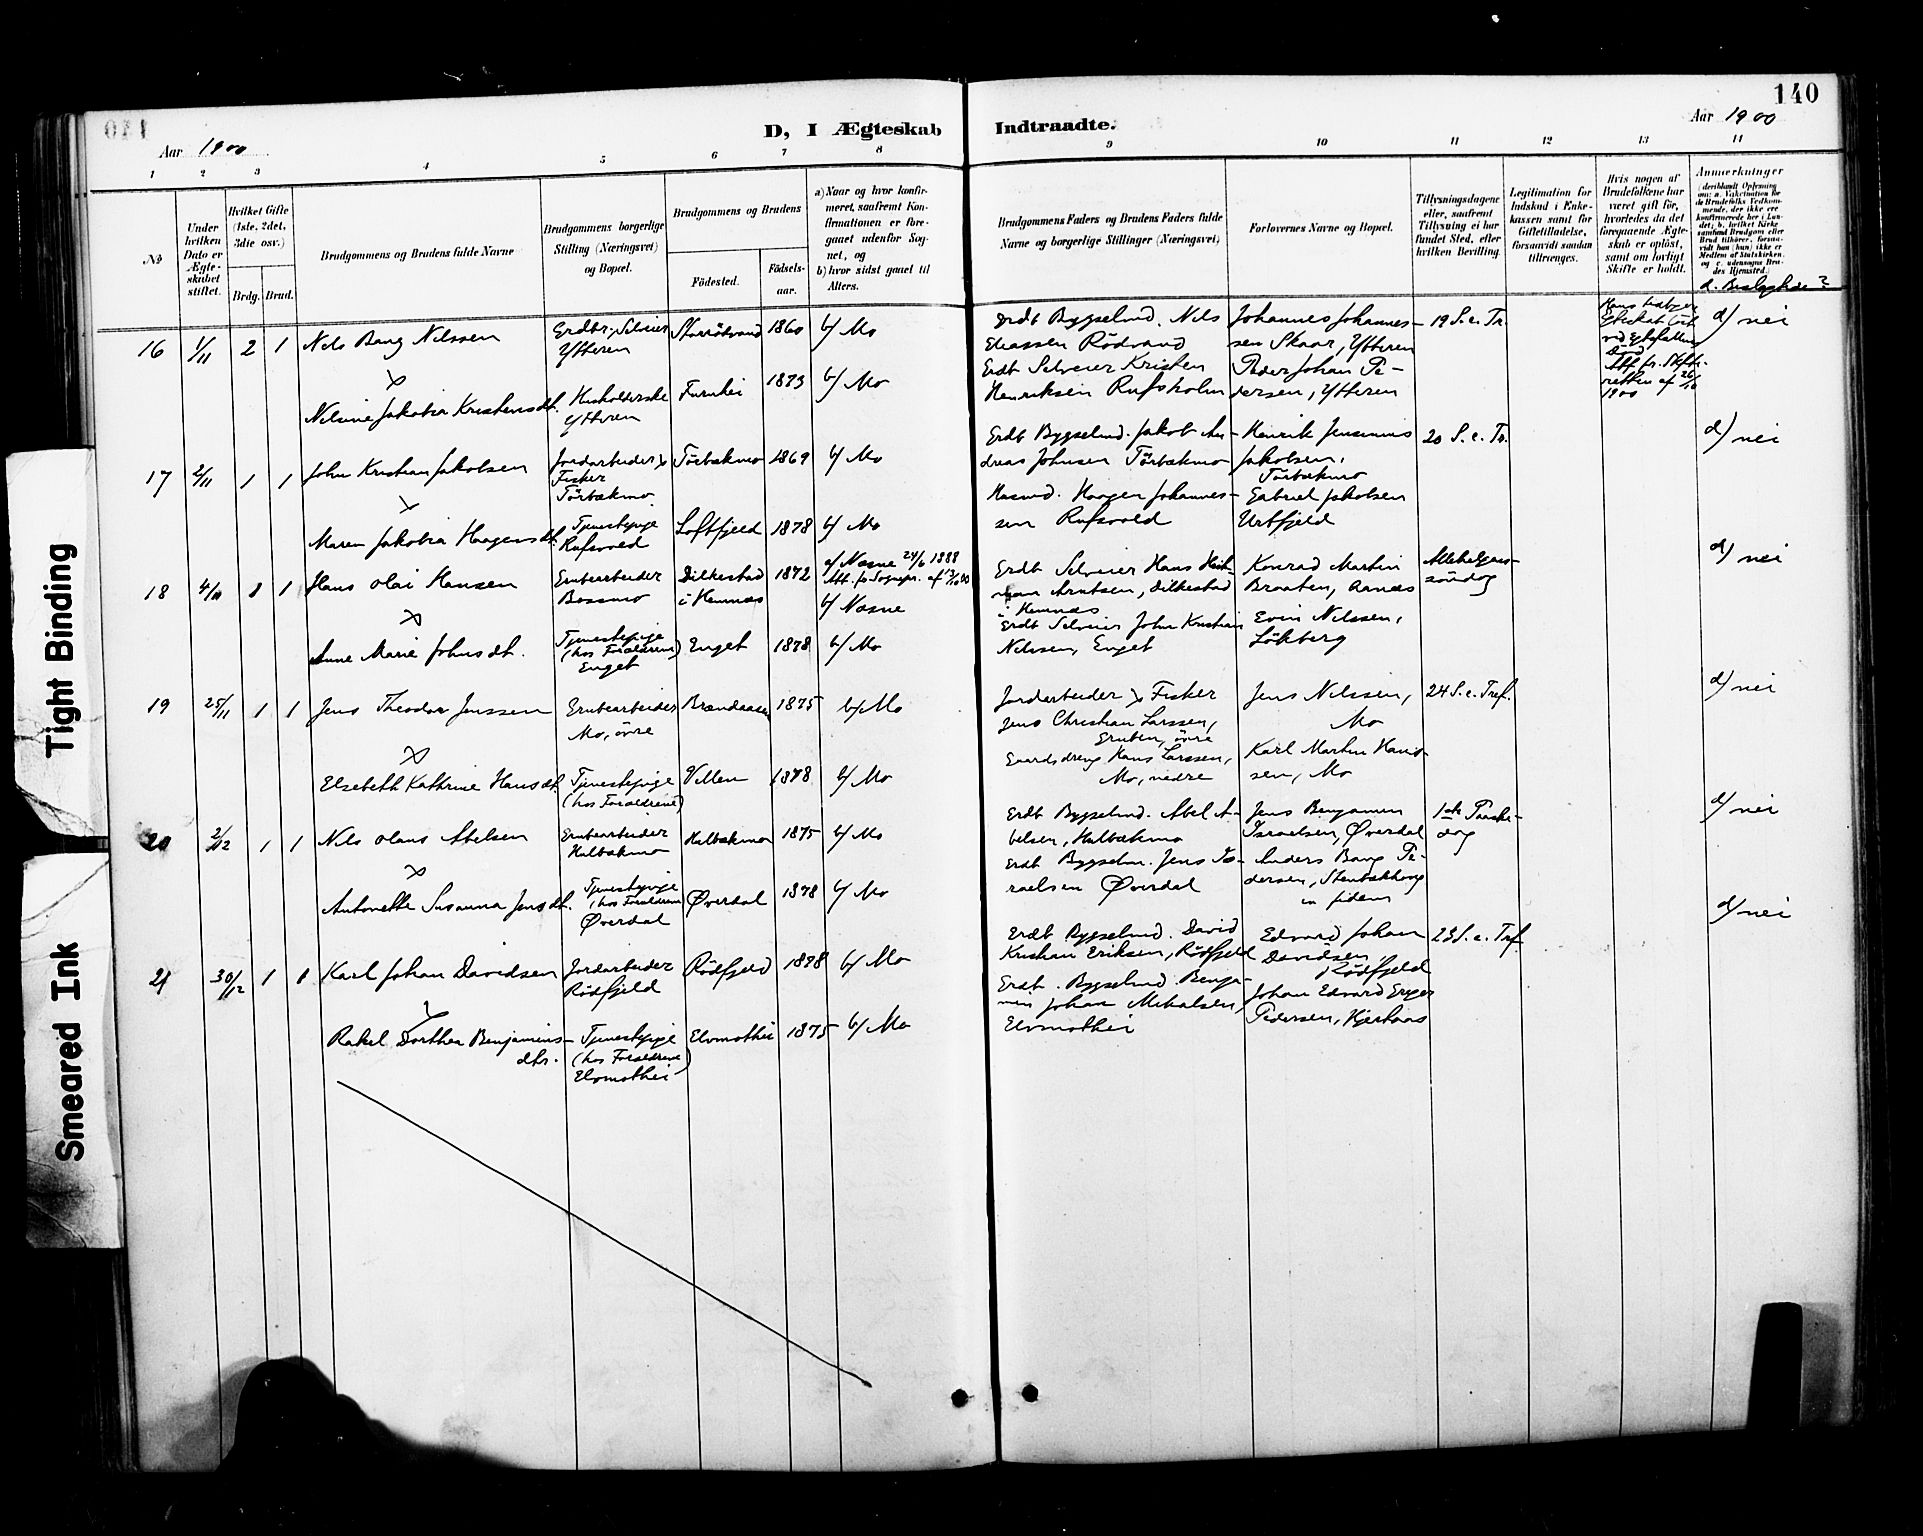 140
Aar 1900
D, I Ægteskab
Indtraadte.
Aar 1900
1 2 3 4 5 6 7 8
9 10 11 12 13 14
No
Under hvilken Dato er Ægteskabet stiftet.
Hvilket Gifte (1ste, 2det, 3die osv.)
Brdg. Brud.
Brudgommens og Brudens fulde Navne
Brudgommens borgerlige Stilling (Næringsvei) og Bopæl.
Brudgommens og Brudens
Fødested. Fødselsaar.
a) Naar og hvor konfirmeret, saafremt Konfirmationen er foregaaet udenfor Sognet, og
b) hvor sidst gaaet til Alters.
Brudgommens Faders og Brudens Faders fulde Navne og borgerlige Stillinger (Næringsvei)
Forlovernes Navne og Bopæl.
Tillysningsdagene eller, saafremt Tillysning ei har fundet Sted, efter hvilken Bevilling.
Legitimation for Indskud i Enkekassen samt for Giftetilladelse, forsaavidt saadan tiltrænges.
Hvis nogen af Brudefolkene har været gift før, hvorledes da det foregaaende Ægteskab er opløst, samt om lovligt Skifte er holdt.
Anmærkninger
d. Beslægtede?
16 1/11 2 1 Nils Bang Nilssen
Ytteren
1860 b/ Mo
Nilsine Jakobia Kristensdt.
Husholderske
Ytteren
Furuhei 1873 b/ Mo
Erdt Bygselmd. Nils
Eliassen Rödvand
Erdt Selveier Kristen
Henriksen Rufsholm
Johannes Johannes-
sen Skaar, Ytteren
Peder Johan Pe-
dersen, Ytteren
19 S. e. Tr.
d/ nei
17 2/11 1 1 John Kristian Jakobsen
Jordarbeider &
Fisker
Törbækmo
Törbækmo 1869 b/ Mo
Maren Jakobia Haagensdt.
Tjenestepige
Rufsvold
Loftfjeld 1878 b/ Mo
Erdt Bygselmd. Jakob An-
dreas Johnsen Törbækmo
Husmd. Haagen Johannes-
sen Rufsvold
Henrik Jensenius
Jakobsen,
Törbækmo
Gabriel Jakobsen
Urtfjeld
20 S. e. Tr.
d/ nei
18 4/11 1 1 Hans Olai Hansen
Grubearbeider
Bossmo
Dilkestad
i Hemnæs
1872
a/ Næsne 24/6 1888
b/ Næsne
Anne Marie Johnsdt.
Tjenestepige
(hos Forældrene)
Enget
Enget 1878 b/ Mo
Erdt Selveier Hans
Arntsen, Dilkestad
i Hemnæs
Erdt Selveier John Kristian
Nilssen, Enget
Konrad Martin
Braaten, Aanæs
Even Nilssen,
Lökberg
Allehelgens-
söndag
d/ nei
19 25/11 1 1 Jens Theodor Jenssen
Grubearbeider
Mo, övre
Brændaasen 1875 b/ Mo
Elsebeth Kathrine Hansdt.
Tjenestepige
(hos Forældrene)
Villen 1878 b/ Mo
Jordarbeider & Fisker
Jens Christian Larssen,
Gruben, övre
Gaardsdreng Hans Larssen,
Mo, nedre
Jens Nilssen,
Mo
Karl Martin Han-
sen, Mo
24 S. e. Tref.
d/ nei
20 2/12 1 1 Nils Olaus Abelsen
Grubearbeider
Halbækmo
Halbækmo 1875 b/ Mo
Antonette Susanna Jensdt.
Tjenestepige
(hos Forældrene
Øverdal
Øverdal 1878 b/ Mo
Erdt Bygselmd. Abel A-
belsen, Halbækmo
Erdt Bygselm. Jens Is-
raelsen Øverdal
Jens Benjamin
Israelsen, Øverdal
Anders Bang Pe-
dersen,
1ste
dag
d/ nei
21 30/12 1 1 Karl Johan Davidsen
Jordarbeider
Rödfjeld
Rödfjeld 1878 b/ Mo
Rakel Dorthea Benjamins-
dtr.
Tjenestepige
(hos Forældrene)
Elvmothei
Elvmothei 1875 b/ Mo
Erdt Bygselmd. David
Kristian Eriksen, Rödfjeld
Erdt. Bygselmd Benja-
min Johan Mikalsen,
Elvmothei
Edvard Johan
Davidsen,
Rödfjeld
Johan Edvard
Pedersen,
23 S. e. Tref.
d/ nei
Tight Binding
Smeared Ink